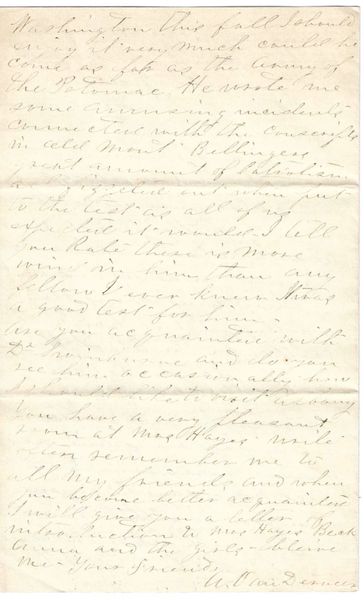 Washington this fall I should
enjoy it very much could he
come as far as the army of
the Potomac. He wrote me
some amusing incidents
connected with the conscripts
in old Mont Bellingers
great amount of patriotism
out when put
to the test as all of us
expected it would I tell
you Kate there is more
wind in him than any
fellow I ever knew it was
a good test for him.
Are you acquainted with
Dr and do you
see him occasionally how
I should like to
You have a very pleasant
room at Mrs Hayes write
often remember me to
all my friends and when
you become better acquainted
I will give you a letter of
introduction to Mrs Hayes Beck
Anna and the girls believe
me Your friend